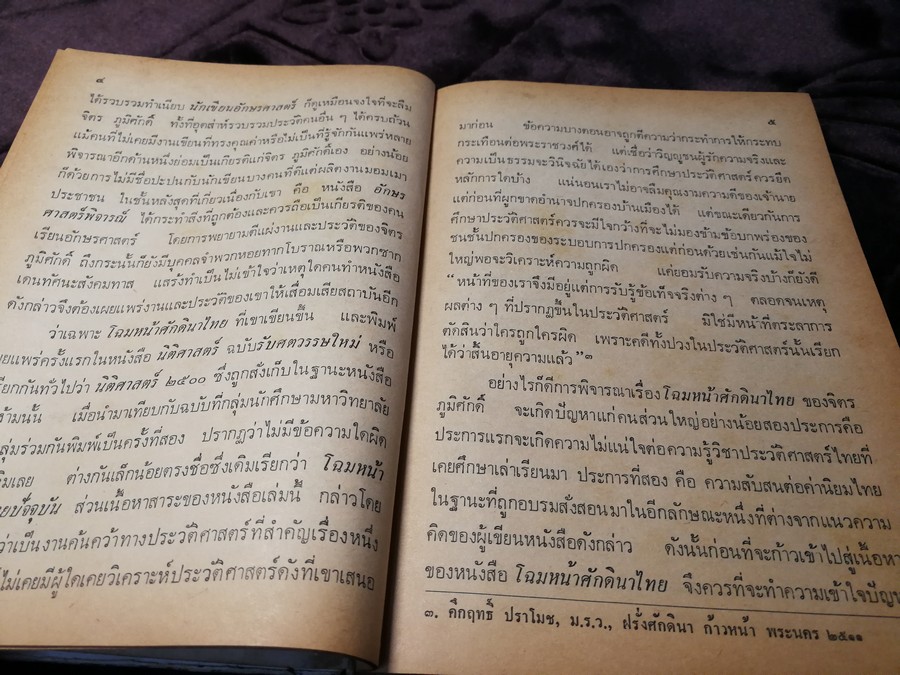 ๔
ได้รวบรวมทำเนียบ นักเขียนอักษรศาสตร์ ก็ดูเหมือนจงใจที่จะลืม
จิตร ภูมิศักดิ์ ทั้งที่อุตส่าห์รวบรวมประวัติคนอื่น ๆ ได้ครบถ้วน
แม้คนที่ไม่เคยมีงานเขียนที่ทรงคุณค่าหรือไม่เป็นที่รู้จักกันแพร่หลาย
พิจารณาอีกด้านหนึ่งย่อมเป็นเกียรติแก่จิตร ภูมิศักดิ์เอง อย่างน้อย
ก็ด้วยการไม่มีชื่อปะปนกับนักเขียนบางคนที่ดีแต่ผลิตงานมอมเมา
ประชาชน ในชั้นหลังสุดที่เกี่ยวเนื่องกับเขา คือ หนังสือ อักษร
ศาสตร์พิจารณ์ ได้กระทำสิ่งที่ถูกต้องและควรถือเป็นเกียรติของคน
เรียนอักษรศาสตร์ โดยการพยายามตีแผ่งานและประวัติของจิตร
ภูมิศักดิ์ ถึงกระนั้นก็ยังมีบุคคลจำพวกหอยทากโบราณหรือพวกซาก
เดนทัศนะสังคมทาส แสร้งทำเป็นไม่เข้าใจว่าเหตุใดคนทำหนังสือ
ดังกล่าวจึงต้องเผยแพร่งานและประวัติของเขาให้เสื่อมเสียสถาบันอีก
ว่าเฉพาะ โฉมหน้าศักดินาไทย ที่เขาเขียนขึ้น และพิมพ์
เผยแพร่ครั้งแรกในหนังสือ นิติศาสตร์ ฉบับรับศตวรรษใหม่ หรือ
เรียกกันทั่วไปว่า นิติศาสตร์ ๒๕๐๐ ซึ่งถูกสั่งเก็บในฐานะหนังสือ
ต้องห้ามนั้น เมื่อนำมาเทียบกับฉบับที่กลุ่มนักศึกษามหาวิทยาลัย
กลุ่มร่วมกันพิมพ์เป็นครั้งที่สอง ปรากฏว่าไม่มีข้อความใดผิด
เดิมเลย ต่างกันเล็กน้อยตรงชื่อซึ่งเดิมเรียกว่า โฉมหน้า
ไทยปัจจุบัน ส่วนเนื้อหาสาระของหนังสือเล่มนี้ กล่าวโดย
ว่าเป็นงานค้นคว้าทางประวัติศาสตร์ที่สำคัญเรื่องหนึ่ง
ไม่เคยมีผู้ใดเคยวิเคราะห์ประวัติศาสตร์ดังที่เขาเสนอ
๕
มาก่อน ข้อความบางตอนอาจถูกตีความว่ากระทำการให้กระทบ
กระเทือนต่อพระราชวงศ์ได้ แต่เชื่อว่าวิญญูชนผู้รักความจริงและ
ความเป็นธรรมจะวินิจฉัยได้เองว่าการศึกษาประวัติศาสตร์ควรยึด
หลักการใดบ้าง แน่นอนเราไม่อาจลืมคุณงามความดีของเจ้านาย
แต่ก่อนที่ผูกขาดอำนาจปกครองบ้านเมืองได้ แต่ขณะเดียวกันการ
ศึกษาประวัติศาสตร์ควรจะมีใจกว้างที่จะไม่มองข้ามข้อบกพร่องของ
ชนชั้นปกครองของระบอบการปกครองแต่ก่อนด้วยเช่นกันแม้ใจไม่
ใหญ่พอจะวิเคราะห์ความถูกผิด แค่ยอมรับความจริงบ้างก็ยังดี
“หน้าที่ของเราจึงมีอยู่แต่การรับรู้ข้อเท็จจริงต่าง ๆ ตลอดจนเหตุ
ผลต่าง ๆ ที่ปรากฏขึ้นในประวัติศาสตร์ มิใช่มีหน้าที่ตระลาการ
ตัดสินว่าใครถูกใครผิด เพราะคดีทั้งปวงในประวัติศาสตร์นั้นเรียก
ได้ว่าสิ้นอายุความแล้ว”๓
อย่างไรก็ดีการพิจารณาเรื่องโฉมหน้าศักดินาไทย ของจิตร
ภูมิศักดิ์ จะเกิดปัญหาแก่คนส่วนใหญ่อย่างน้อยสองประการคือ
ประการแรกจะเกิดความไม่แน่ใจต่อความรู้วิชาประวัติศาสตร์ไทยที่
เคยศึกษาเล่าเรียนมา ประการที่สอง คือ ความสับสนต่อค่านิยมไทย
ในฐานะที่ถูกอบรมสั่งสอนมาในอีกลักษณะหนึ่งที่ต่างจากแนวความ
คิดของผู้เขียนหนังสือดังกล่าว ดังนั้นก่อนที่จะก้าวเข้าไปสู่เนื้อหา
ของหนังสือ โฉมหน้าศักดินาไทย จึงควรที่จะทำความเข้าใจปัญหา
๓. คึกฤทธิ์ ปราโมช, ม.ร.ว., ฝรั่งศักดินา ก้าวหน้า พระนคร ๒๕๑๑